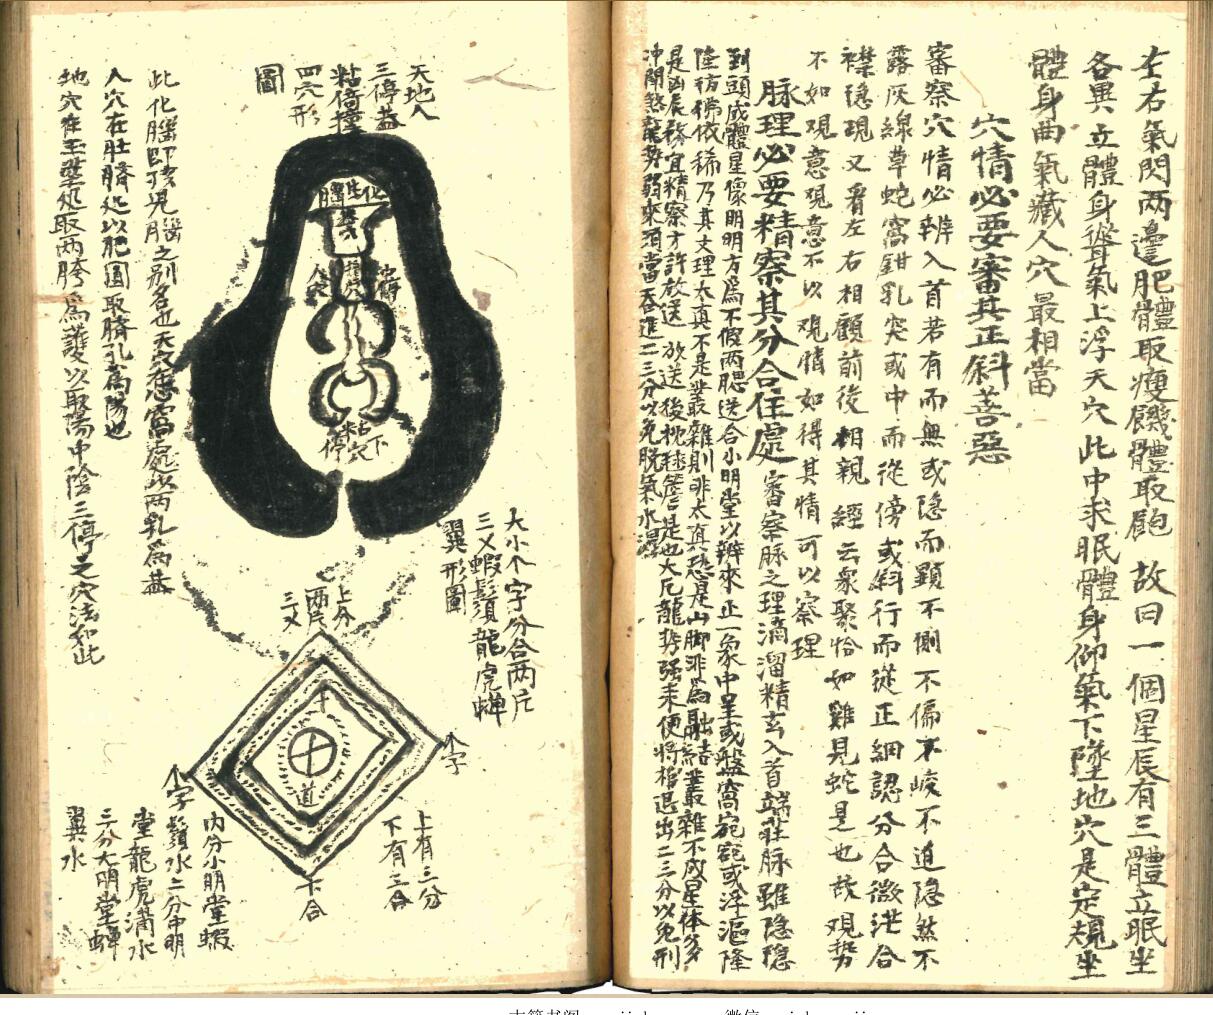 左右氣閃兩邊肥體取瘦饑體取飽故曰一個星辰有三體立眠坐
各異立體身聳氣上浮天穴此中求眠體身仰氣下墜地穴是定規坐
體身曲氣藏人穴最相當
穴情必要審其正斜善惡
審察穴情必辨入首若有而無或隱而顯不側不偏不峻不逼隱然不
露灰線草蛇窩鉗乳突或中而從傍或斜行而從正細認分合微茫合
襟隱現又看左右相顧前後相親經云衆聚恰如雞見蛇是也故观势
不如观意观意不以观情如得其情可以察理
脉理必要精察其分合住處
審察脉之理滴溜精玄入首端莊脉雖隱隱
到頭成體星像明明方爲不假兩腮送合小明堂以辨來正一象中呈或盤窩宛宛或浮漚隆
陸彷彿依稀乃其文理太真不是叢雜則非太真恐是山脚非爲融結叢雜不成星体多
是凶辰務宜精察才許放送放送後枕毬簷是也大凡龍势强來便將棺退出二三分以免刑
冲開煞龍势弱來須當吞進二三分以免脫氣水濕
天地人
三停蓋
粘倚撞
四穴形
圖
化生腦
天穴
人穴
撞穴
中停
下停
粘穴
此化腦即孩兒腦之别名也天穴在窩處以兩乳爲蓋
人穴在肚臍処以肥圓取臍孔爲陽也
地穴在玉莖処取兩胯爲護以取陽中陰三停之穴法如此
大小个字分合两片
三乂蝦鬚龍虎蟬
翼形圖
上分
两片
三乂
十
道
个字
个字
下合
上有三分
下有三合
内分小明堂蝦
鬚水二分中明
堂龍虎滴水
三分大明堂蟬
翼水